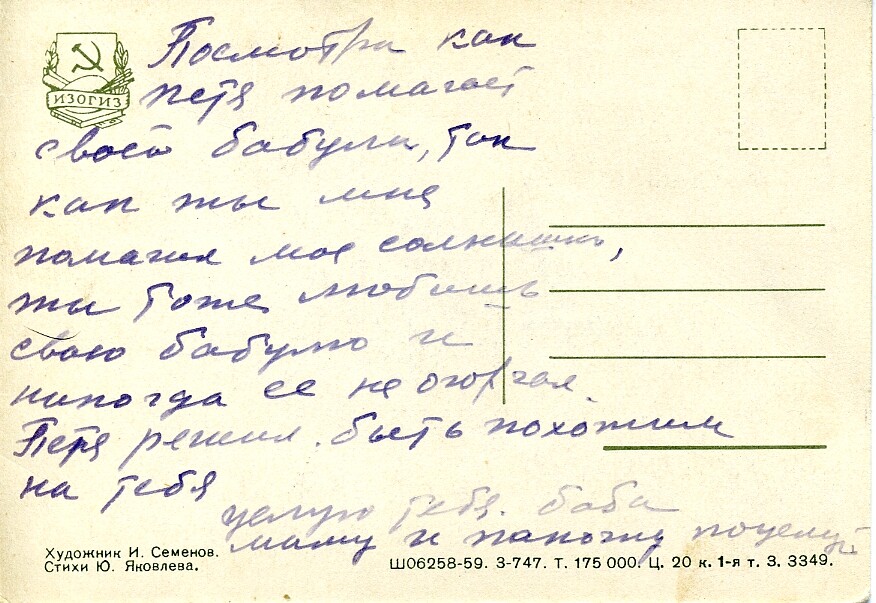 ИЗОГИЗ
Посмотри как
петя помагает
своей бабули, так
как ты мне
помагал мое солнышко,
ты тоже любишь
свою бабулю и
никогда ее не огорчал.
Петя решил быть похожим
на тебя
целую тебя. баба
маму и папочку поцелуй
Художник И. Семенов.
Стихи Ю. Яковлева.
Ш06258-59. З-747. Т. 175 000. Ц. 20 к. 1-я т. З. 3349.